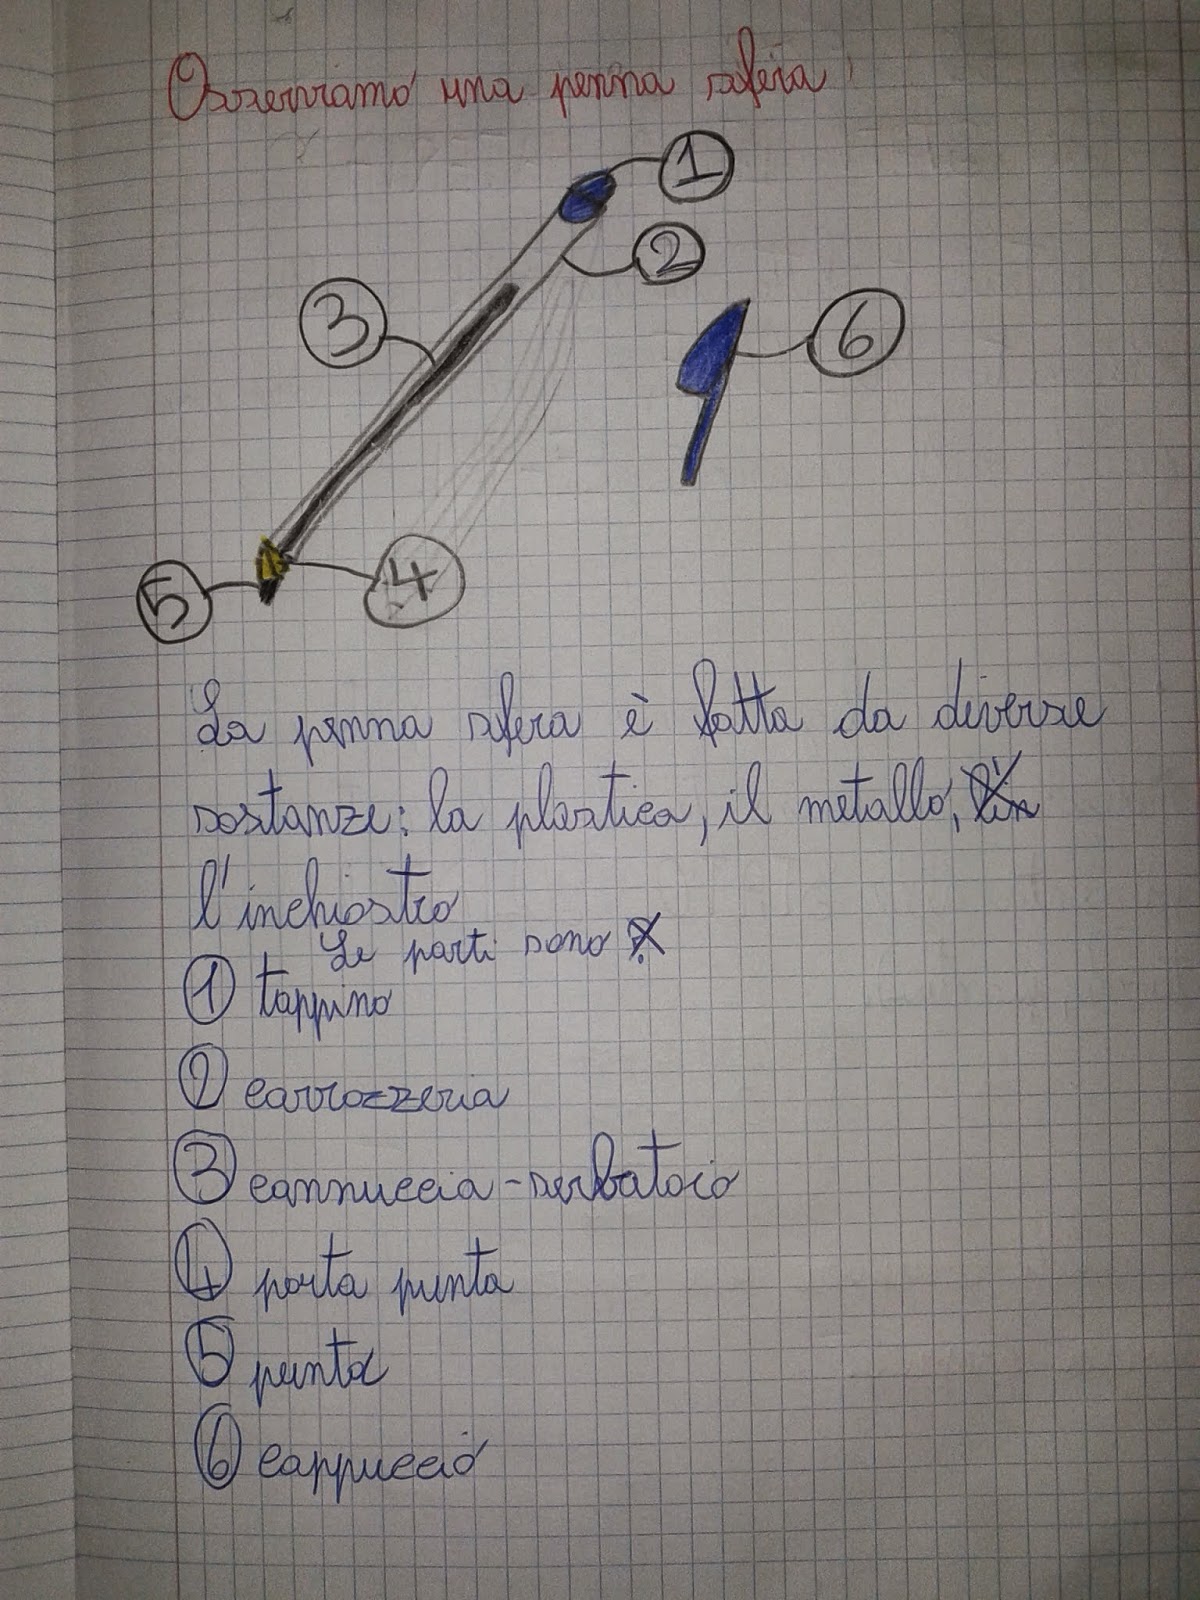 Osserviamo una penna sfera
1
2
3
6
5
4
La penna sfera è fatta da diverse
sostanze: la plastica, il metallo,
l'inchiostro
Le parti sono
1 tappino
2 carrozzeria
3 cannuccia-serbatoio
4 porta punta
5 punta
6 cappuccio